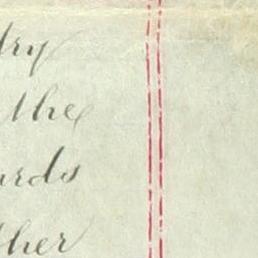 try
the
ards
ther